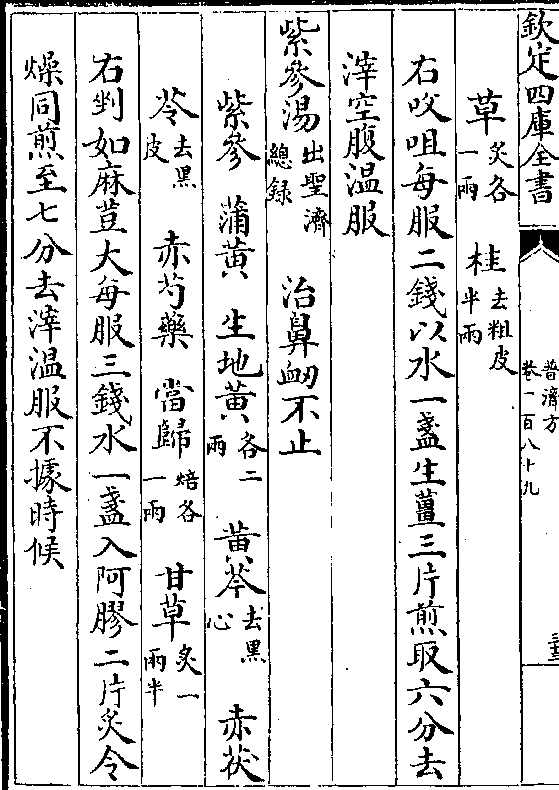 欽定四庫全書
普濟方
卷一百八十九
草炙各一兩 桂去粗皮半兩
右㕮咀每服二錢以水一盞生薑三片煎取六分去
滓空腹温服
紫參湯出聖濟總録 治鼻衂不止
紫參 蒲黄 生地黄各二兩 黄芩去黑心 赤茯
苓去黑皮 赤芍藥 當歸焙各一兩 甘草炙一兩半
右剉如麻荳大每服三錢水一盞入阿膠二片炙令
燥同煎至七分去滓温服不據時候